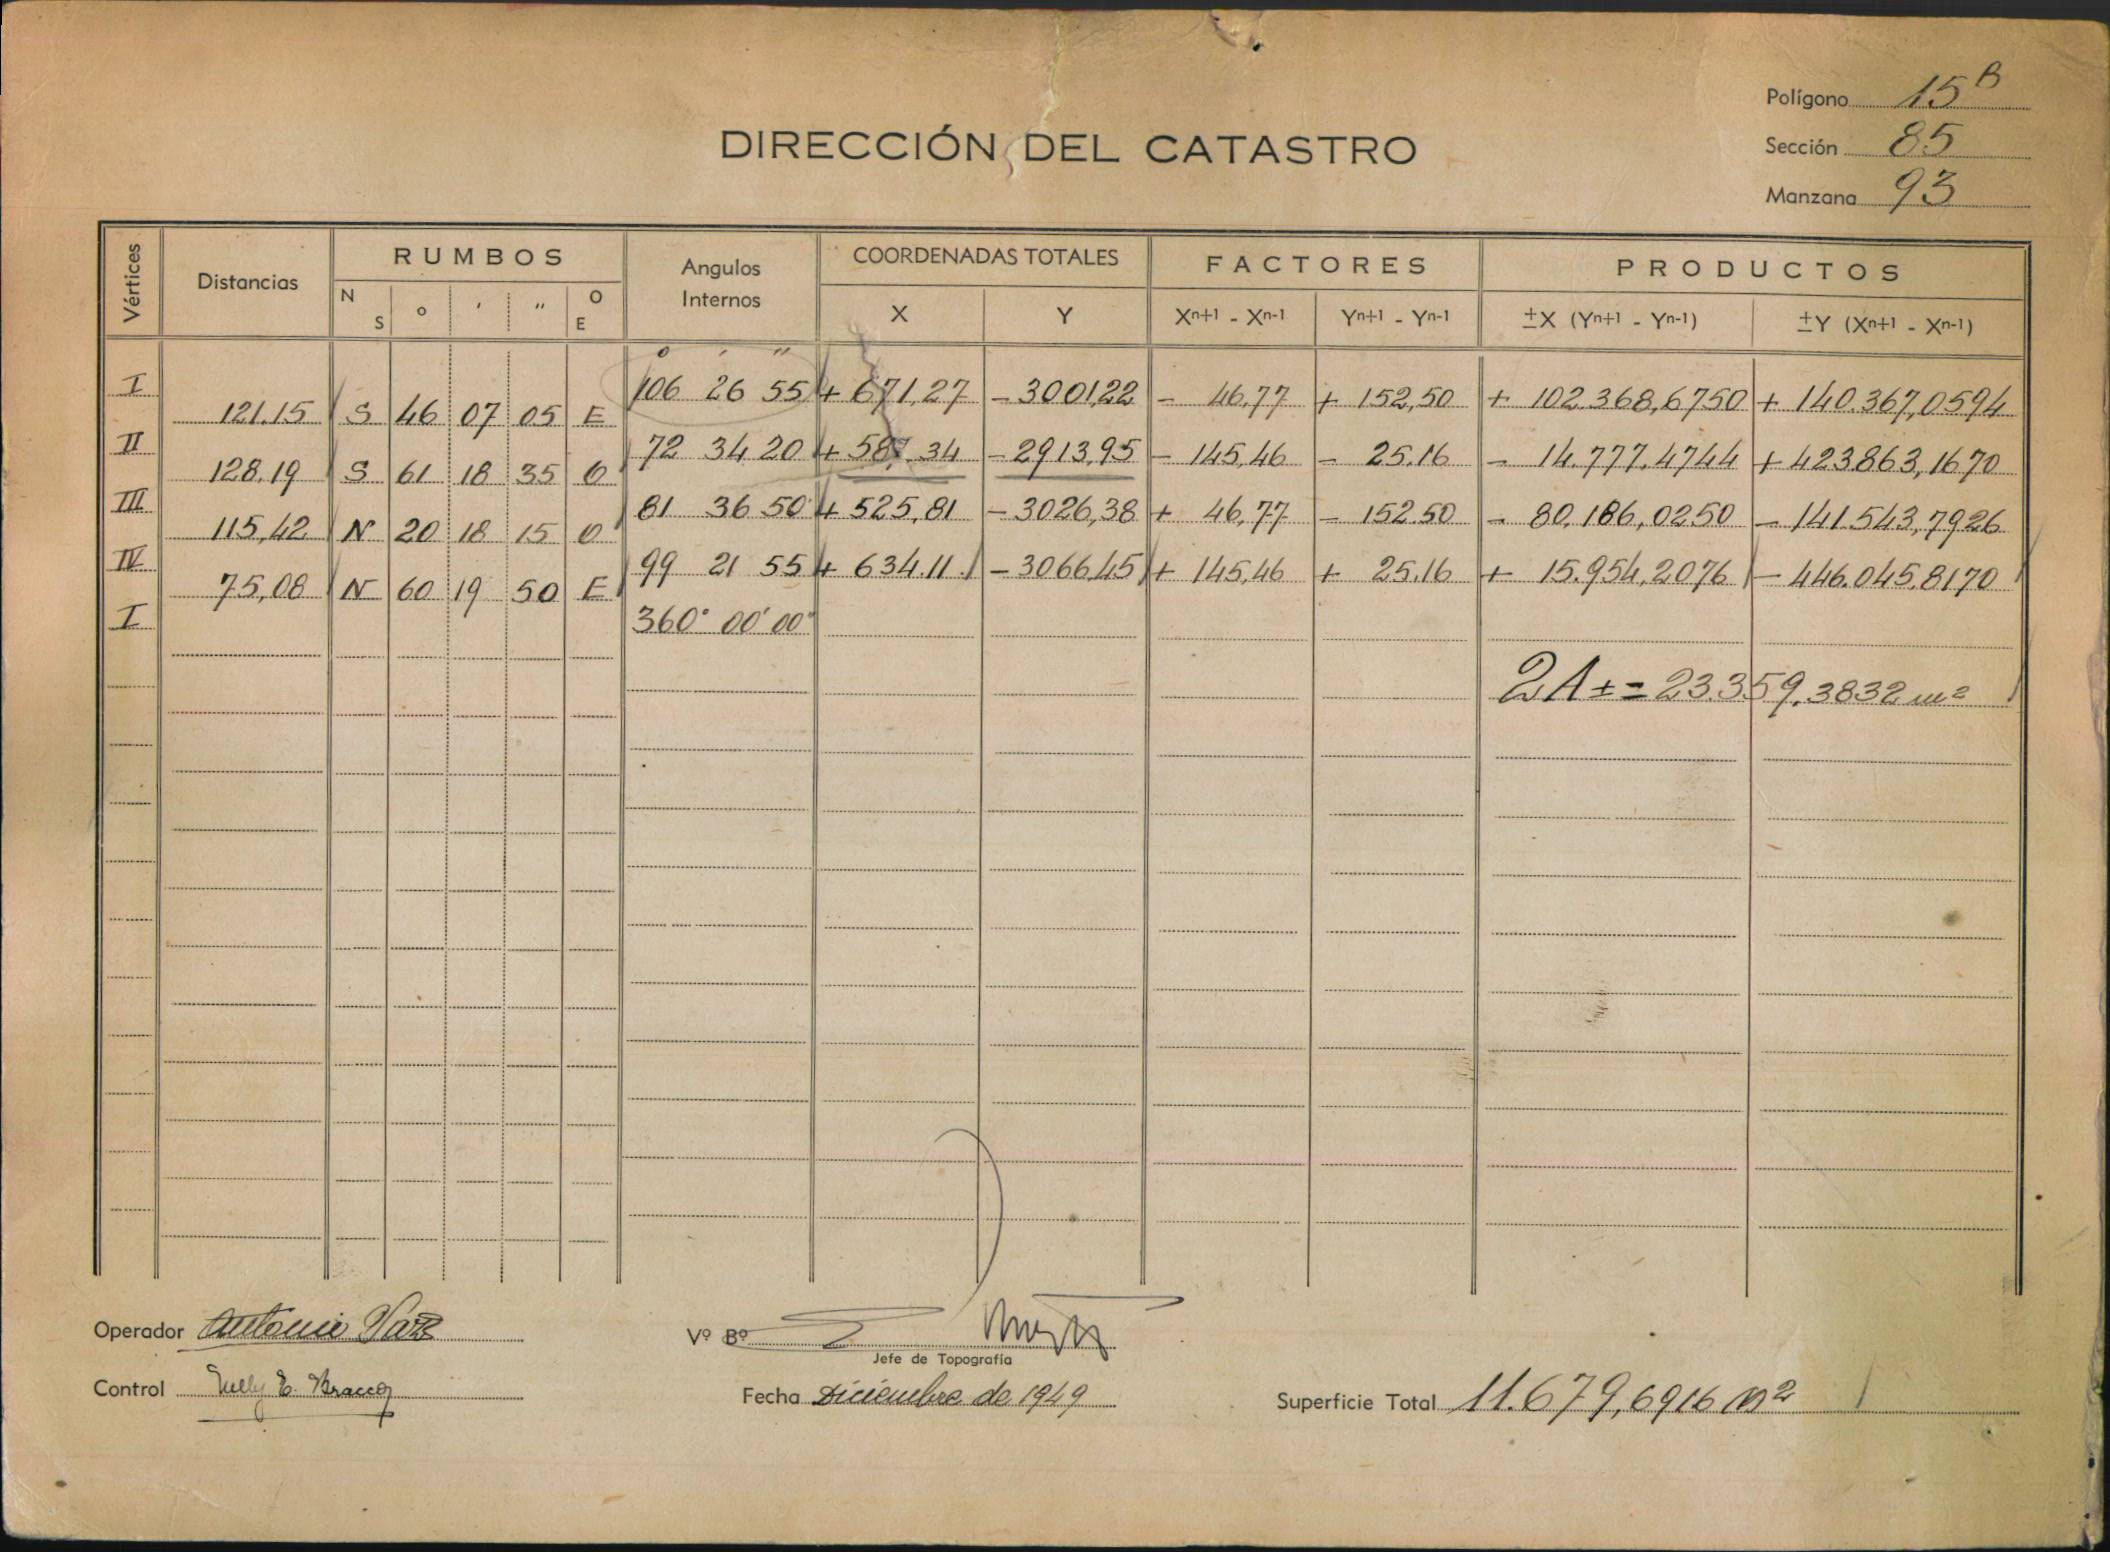 Polígono 15 B
Sección 85
Manzana 93
DIRECCIÓN DEL CATASTRO
Vértices Distancias RUMBOS Angulos Internos COORDENADAS TOTALES FACTORES PRODUCTOS
N S ° ' " O E X Y Xn+1 - Xn-1 Yn+1 - Yn-1 ±X (Yn+1 - Yn-1) ±Y (Xn+1 - Xn-1)
° ' "
I 106 26 55 + 671,27 - 3001,22 - 46,77 + 152,50 + 102.368,6750 + 140.367,0594
121.15 S 46 07 05 E
II 72 34 20 + 587,34 - 2913,95 - 145,46 - 25.16 - 14.777,4744 + 423863,1670
128.19 S 61 18 35 O
III 81 36 50 + 525,81 - 3026,38 + 46,77 - 152.50 - 80.186,0250 - 141.543,7926
115,42 N 20 18 15 O
IV 99 21 55 + 634.11 - 3066,45 + 145,46 + 25.16 + 15.954,2076 - 446.045,8170
75,08 N 60 19 50 E
I 360° 00' 00"
2A ± = 23.359,3832 m²
Operador Antonio
Vº Bº
Jefe de Topografía
Control Nelly E. Bracco
Fecha Diciembre de 1949
Superficie Total 11.679,6916 m²